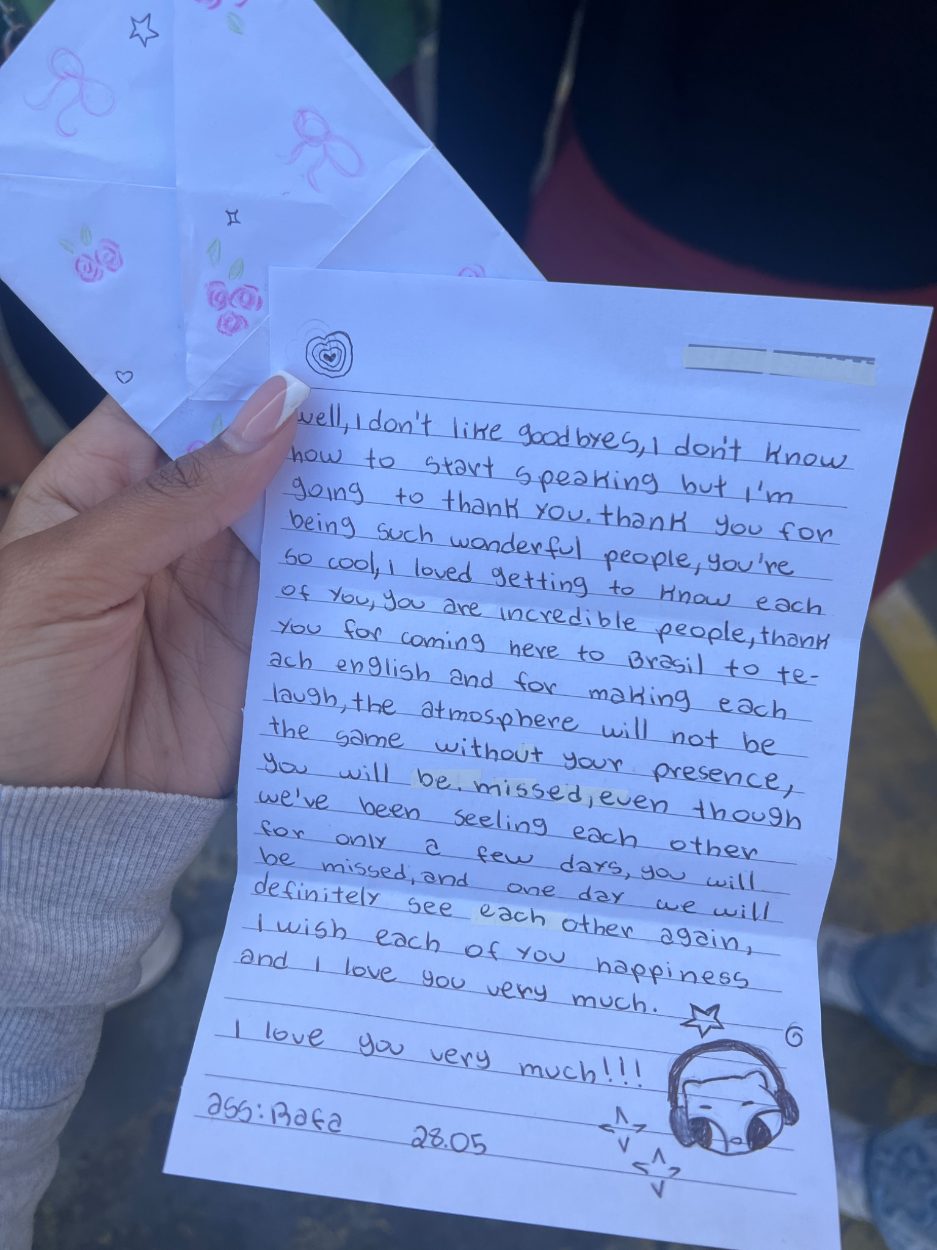 well, I don't like goodbyes, I don't know
how to start speaking but I'm
going to thank you. thank you for
being such wonderful people, you're
so cool, I loved getting to know each
of you, you are incredible people, thank
you for coming here to Brasil to te-
ach english and for making each
laugh, the atmosphere will not be
the same without your presence,
you will be missed, even though
we've been seeling each other
for only a few days, you will
be missed, and one day we will
definitely see each other again,
I wish each of you happiness
and I love you very much.
I love you very much!!!
ass: Rafa 28.05